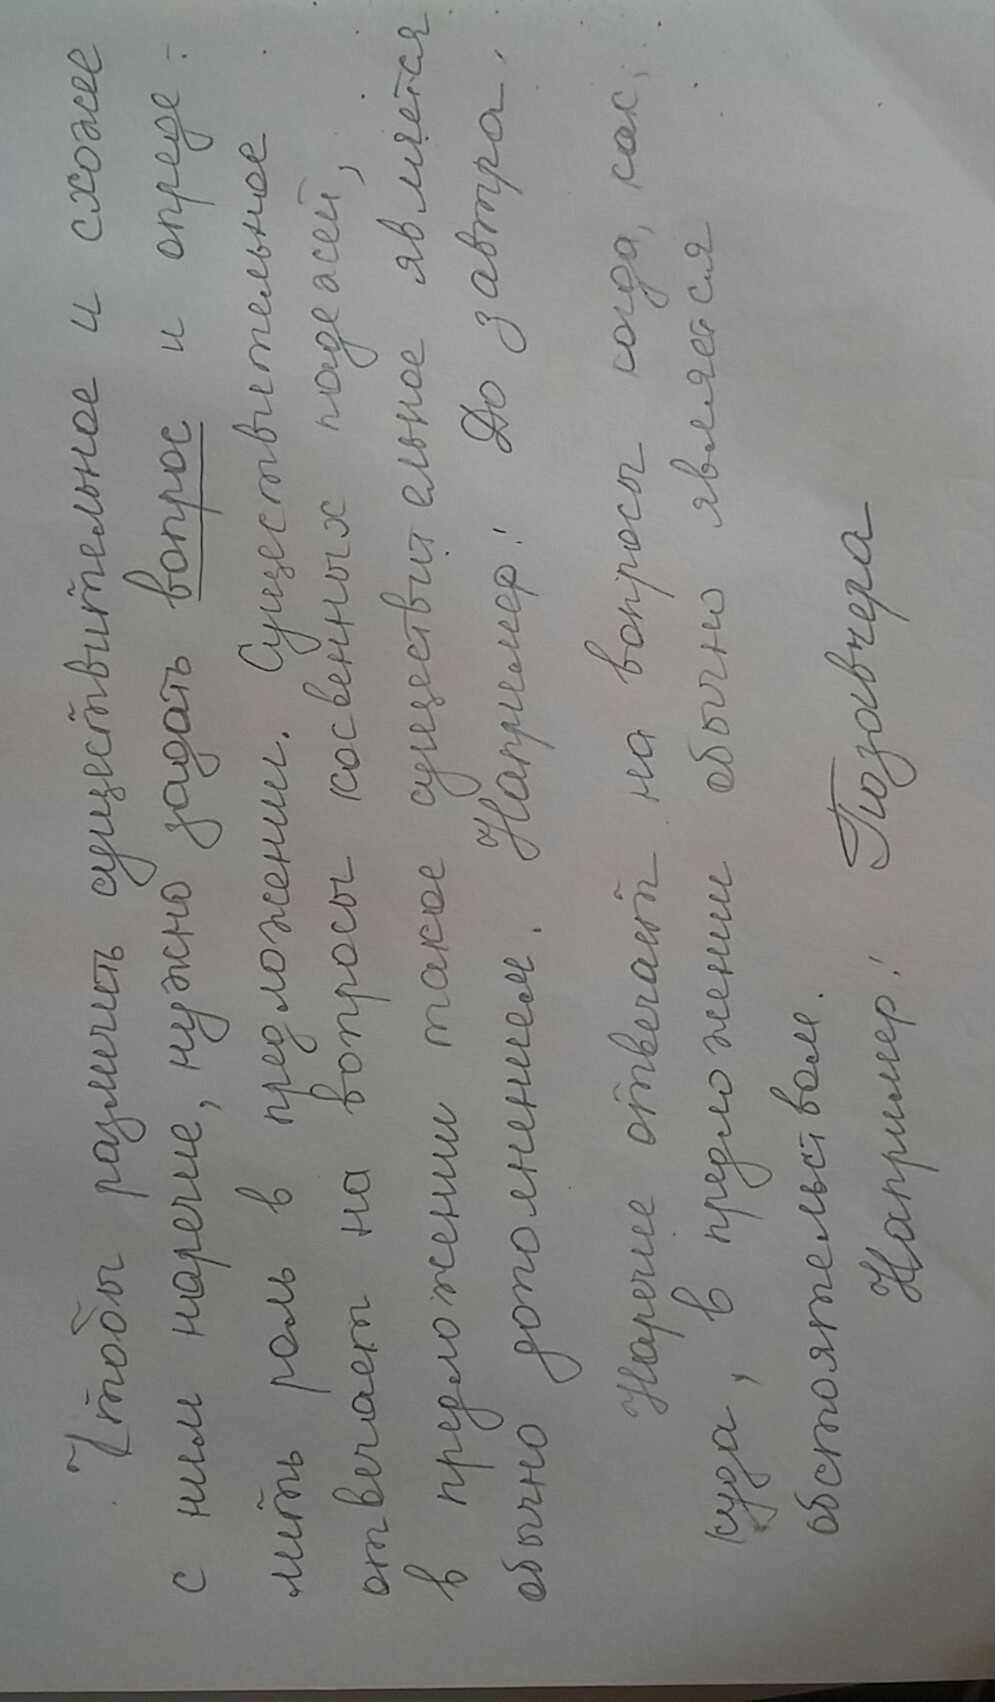 Чтобы различить существительное и схожее
с ним наречие, нужно задать вопрос и опреде-
лить роль в предложении. Существительное
отвечает на вопросы косвенных падежей,
в предложении такое существительное является
обычно дополнением. Например: До завтра.
Наречие отвечает на вопросы когда, как,
куда, в предложении обычно является
обстоятельством.
Например: Позавчера